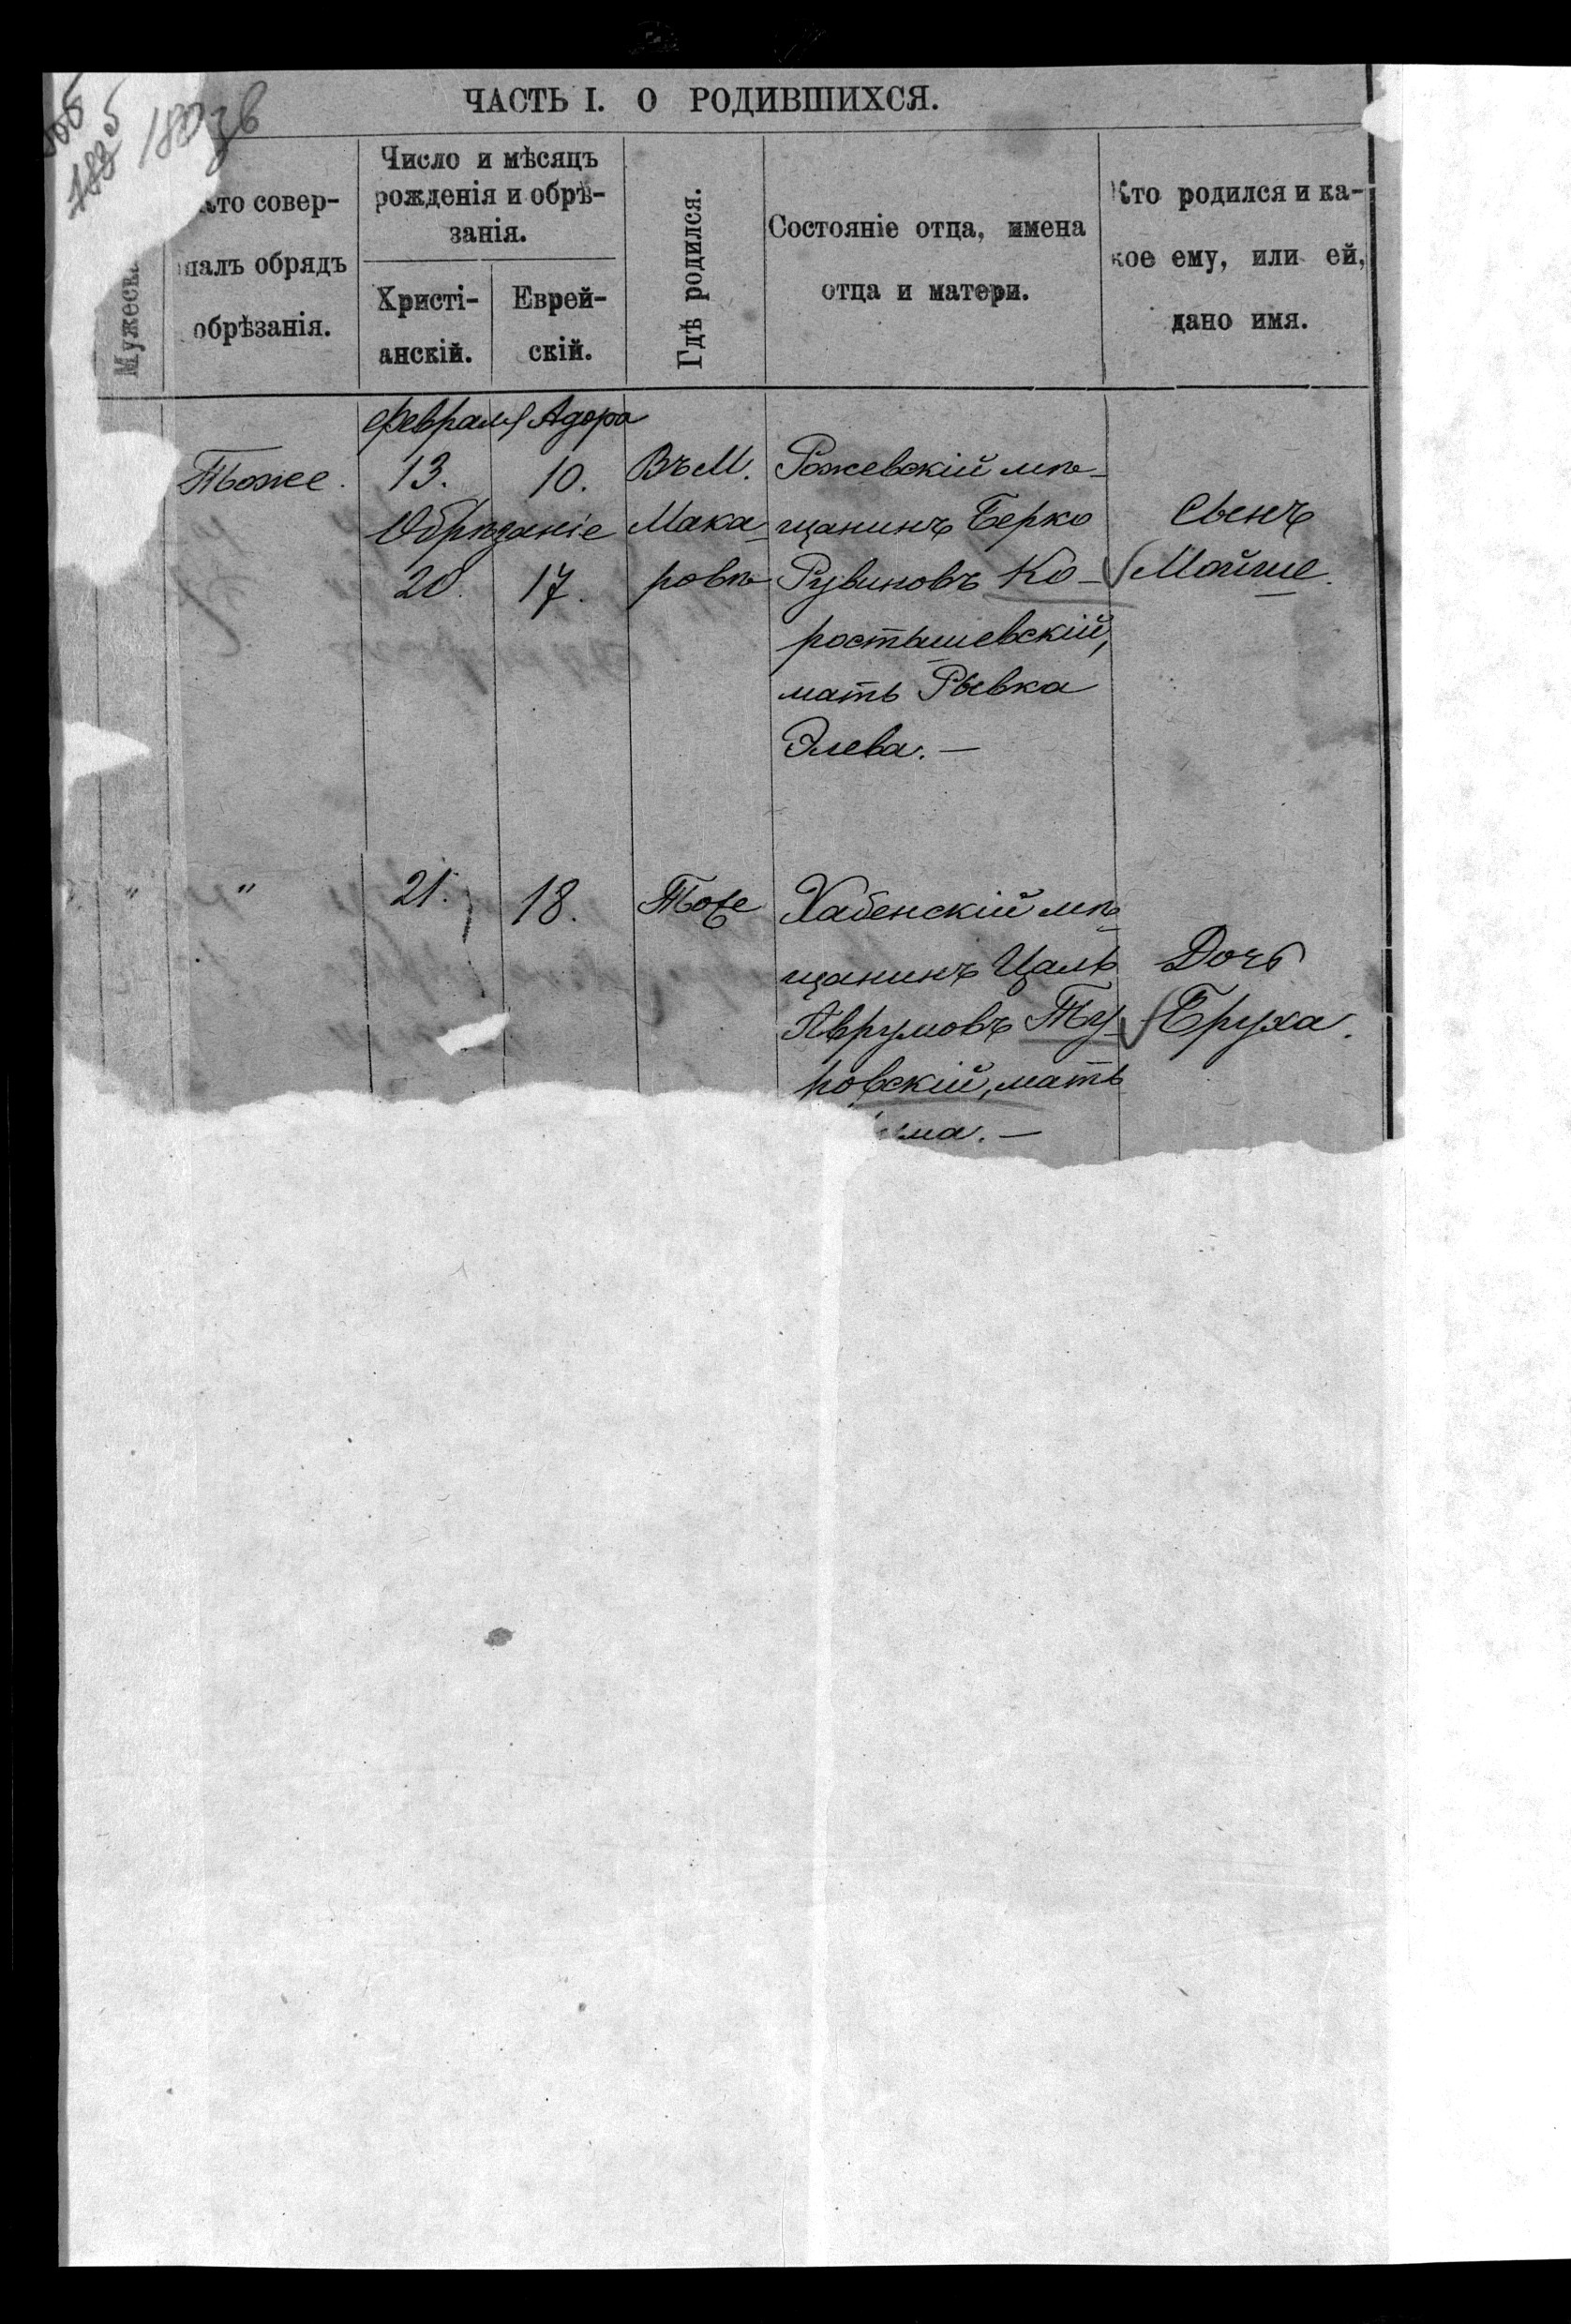 180 зв
ЧАСТЬ I. О РОДИВШИХСЯ.
Мужеска
Кто совер-
шалъ обрядъ
обрѣзанія.
Число и мѣсяцъ
рожденія и обрѣ-
занія.
Христі-
анскій.
Еврей-
скій.
Гдѣ родился.
Состояніе отца, имена
отца и матери.
Кто родился и ка-
кое ему, или ей,
дано имя.
Тоже.
Февраля
13.
Адора
10.
Обрѣзаніе
20.
17.
Въ М.
Мака-
ровѣ
Рожевскій мѣ-
щанинъ Берко
Рувиновъ Ко-
ростышевскій,
мать Рывка
Элева. —
Сынъ
Мойше.
"
"
21.
18.
Тоже
Хабенскій мѣ-
щанинъ Цаль
Аврумовъ Ту-
ровскій, мать
ма. —
Дочь
Бруха.